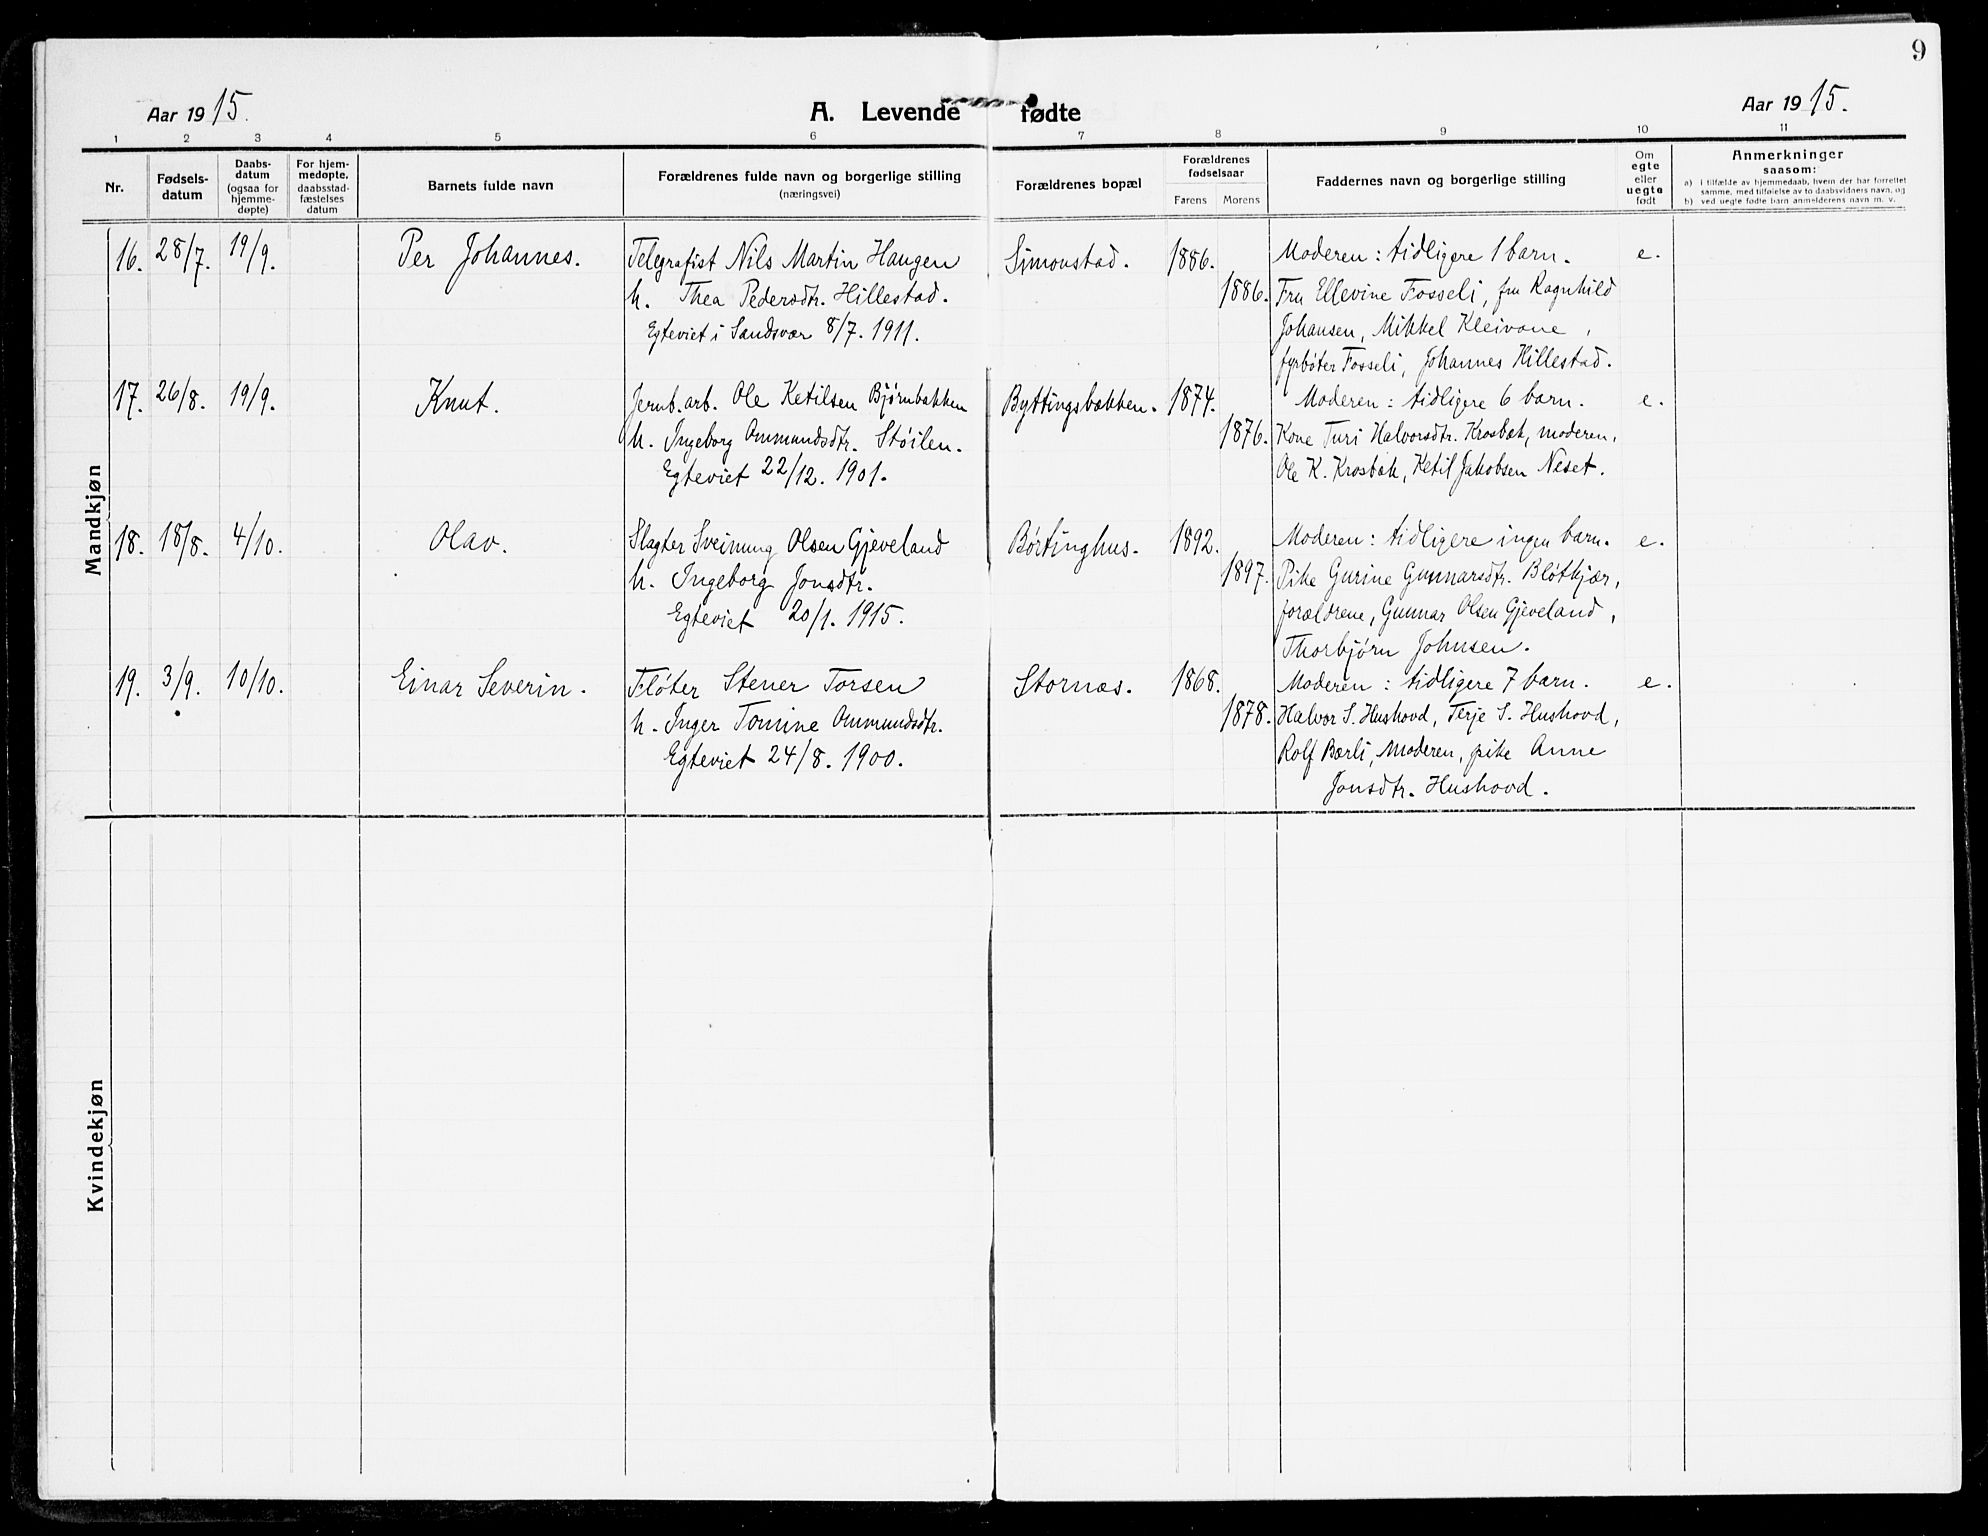 9
Aar 1915.
A. Levende fødte
Aar 1915.
1 2 3 4 5 6 7 8 9 10 11
Nr.
Fødsels-
datum
Daabs-
datum
(ogsaa for
hjemme-
døpte)
For hjem-
medøpte,
daabsstad-
fæstelses
datum
Barnets fulde navn
Forældrenes fulde navn og borgerlige stilling
(næringsvei)
Forældrenes bopæl
Forældrenes
fødselsaar
Farens Morens
Faddernes navn og borgerlige stilling
Om
egte
eller
uegte
født
Anmerkninger
saasom:
a) I tilfælde av hjemmedaab, hvem der har forrettet
samme, med tilføielse av to daabsvidners navn, og
b) ved uegte fødte barn anmelderens navn m. v.
Mandkjøn
16. 28/7. 19/9. Per Johannes.
Telegrafist Nils Martin Haugen
h. Thea Pedersdtr. Hillestad.
Egteviet i Sandsvær 8/7. 1911.
Simonstad. 1886.
1886.
Moderen: tidligere 1 barn. e.
Fru Ellevine Fosseli, fru Ragnhild
Johansen, Mikkel Kleivane,
fyrbøter Fosseli, Johannes Hillestad.
17. 26/8. 19/9. Knut.
Jernb. arb. Ole Ketilsen Bjørnbakken
h. Ingeborg Ommundsdtr. Støilen.
Egteviet 22/12. 1901.
Byttingsbakken. 1874.
1876.
Moderen: tidligere 6 barn. e.
Kone Turi Halvorsdtr. Krosbæk, moderen,
Ole K. Krosbæk, Ketil Jakobsen Neset.
18. 18/8. 4/10. Olav.
Slagter Sveinung Olsen Gjeveland
h. Ingeborg Jonsdtr.
Egteviet 20/1. 1915.
Børtinghus. 1892.
1897.
Moderen: tidligere ingen barn. e.
Pike Gurine Gunnarsdtr. Bløtkjær,
forældrene, Gunnar Olsen Gjeveland,
Thorbjørn Johnsen.
19. 3/9. 10/10. Einar Severin.
Fløter Stener Torsen
h. Inger Tomine Ommundsdtr.
Egteviet 24/8. 1900.
Stornæs. 1868.
1878.
Moderen: tidligere 7 barn. e.
Halvor S. Hushovd, Terje S. Hushovd,
Rolf Bærli, Moderen, pike Anne
Jonsdtr. Hushovd.
Kvindekjøn